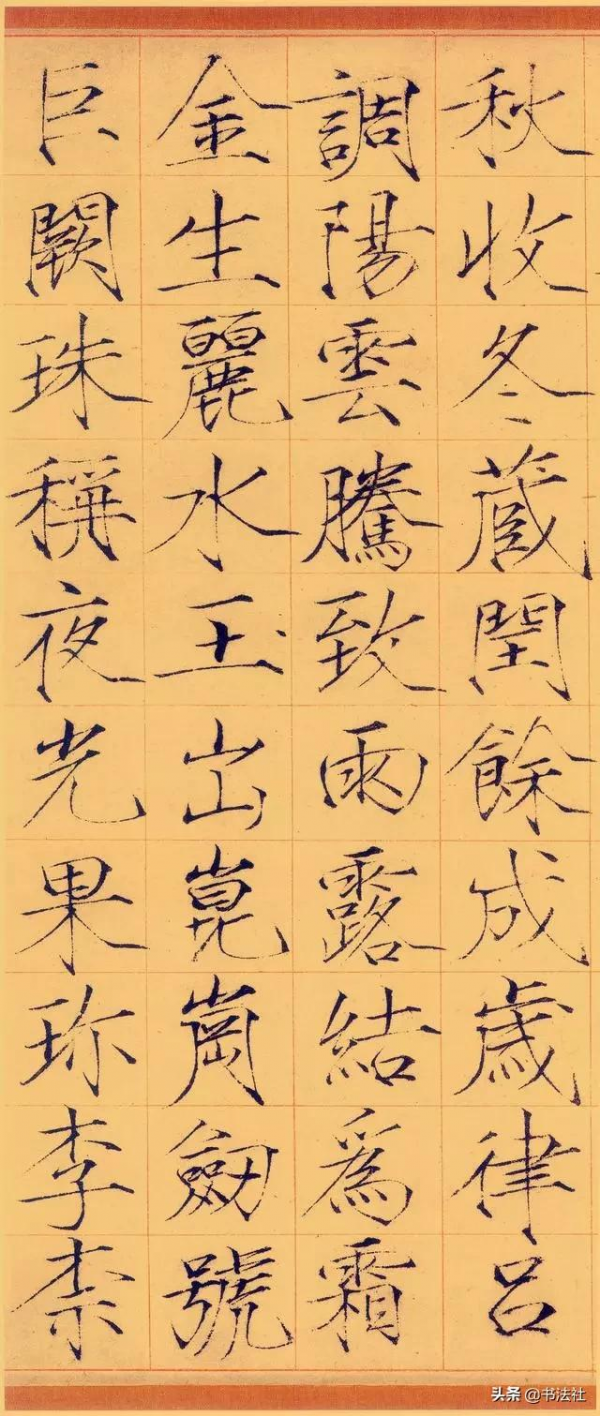 秋收冬蔵閏餘成歲律呂
調陽雲騰致雨露結爲霜
金生麗水玉出崑崗劒號
巨闕珠稱夜光果珎李柰
头条 @书法社